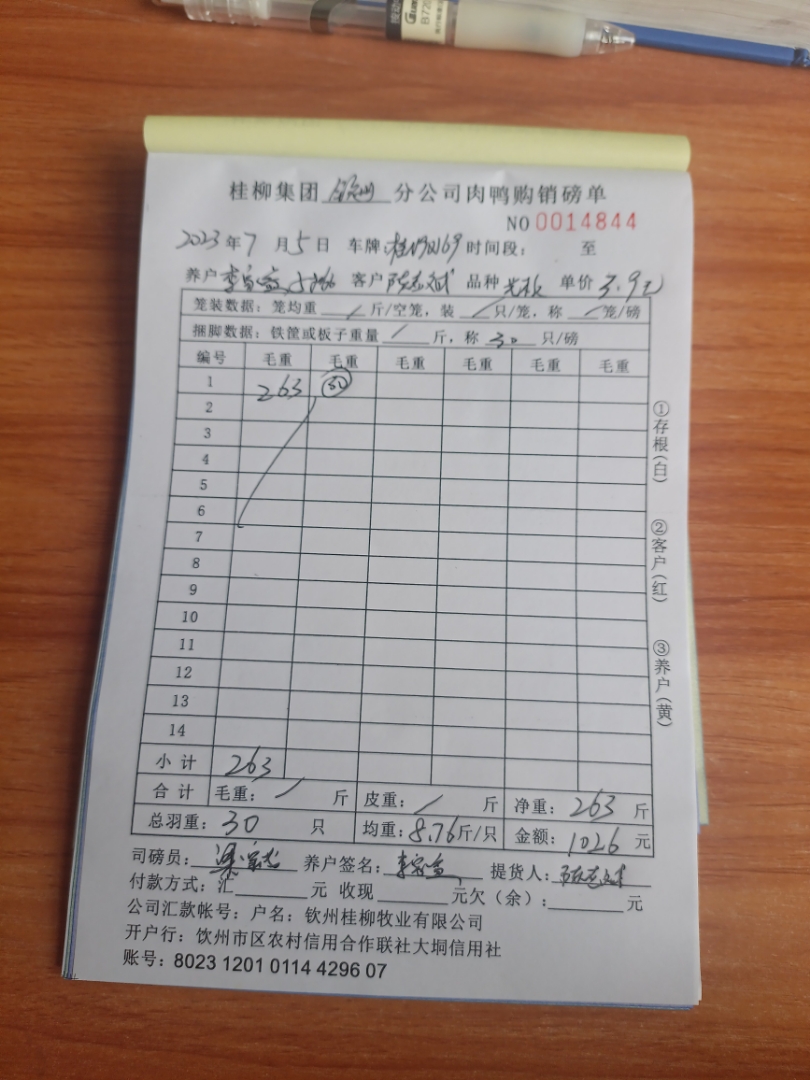 B720
桂柳集团 钦州 分公司肉鸭购销磅单
NO 0014844
2023年7月5日 车牌: 时间段: 至
养户 客户 品种 单价 3.9元
笼装数据:笼均重 / 斤/空笼,装 / 只/笼,称 / 笼/磅
捆脚数据:铁筐或板子重量 / 斤,称 30 只/磅
编号 毛重 毛重 毛重 毛重 毛重 毛重
1 263 30
2
3
4
5
6
7
8
9
10
11
12
13
14
小计 263
合计 毛重: / 斤 皮重: / 斤 净重: 263 斤
总羽重: 30 只 均重: 8.76斤/只 金额: 1026 元
司磅员: 养户签名: 提货人:
付款方式:汇 元 收现 元欠(余): 元
公司汇款帐号:户名:钦州桂柳牧业有限公司
开户行:饮州市区农村信用合作联社大垌信用社
账号:8023 1201 0114 4296 07
①存根(白)
②客户(红)
③养户(黄)